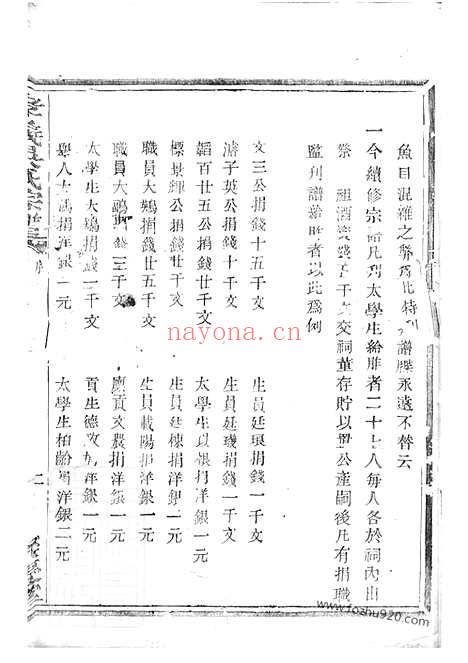 魚目混雜之弊爲此特刊譜牒永遠不替云
一今續修宗譜凡列太學生給胙者二十七人每人各於祠內出
祭祖酒錢千文交祠董存貯以置公產嗣後凡有捐職
監列譜給胙者以此爲例
文三公捐錢十五千文
生員廷璪捐錢一千文
濬子英公捐錢十千文
生員廷璣捐錢一千文
韜百廿五公捐錢廿千文
太學生以捐洋銀一元
標景輝公捐錢廿五千文
生員廷棟捐洋銀一元
職員大鵷捐錢廿五千文
生員載陽捐洋銀一元
職員大鵬捐錢三千文
廩貢文農捐洋銀一元
太學生大鴻捐錢一千文
貢生德洋銀一元
舉人大捐洋銀一元
太學生柏齡捐洋銀二元
二
nayona.cn
www.fozhu920.com